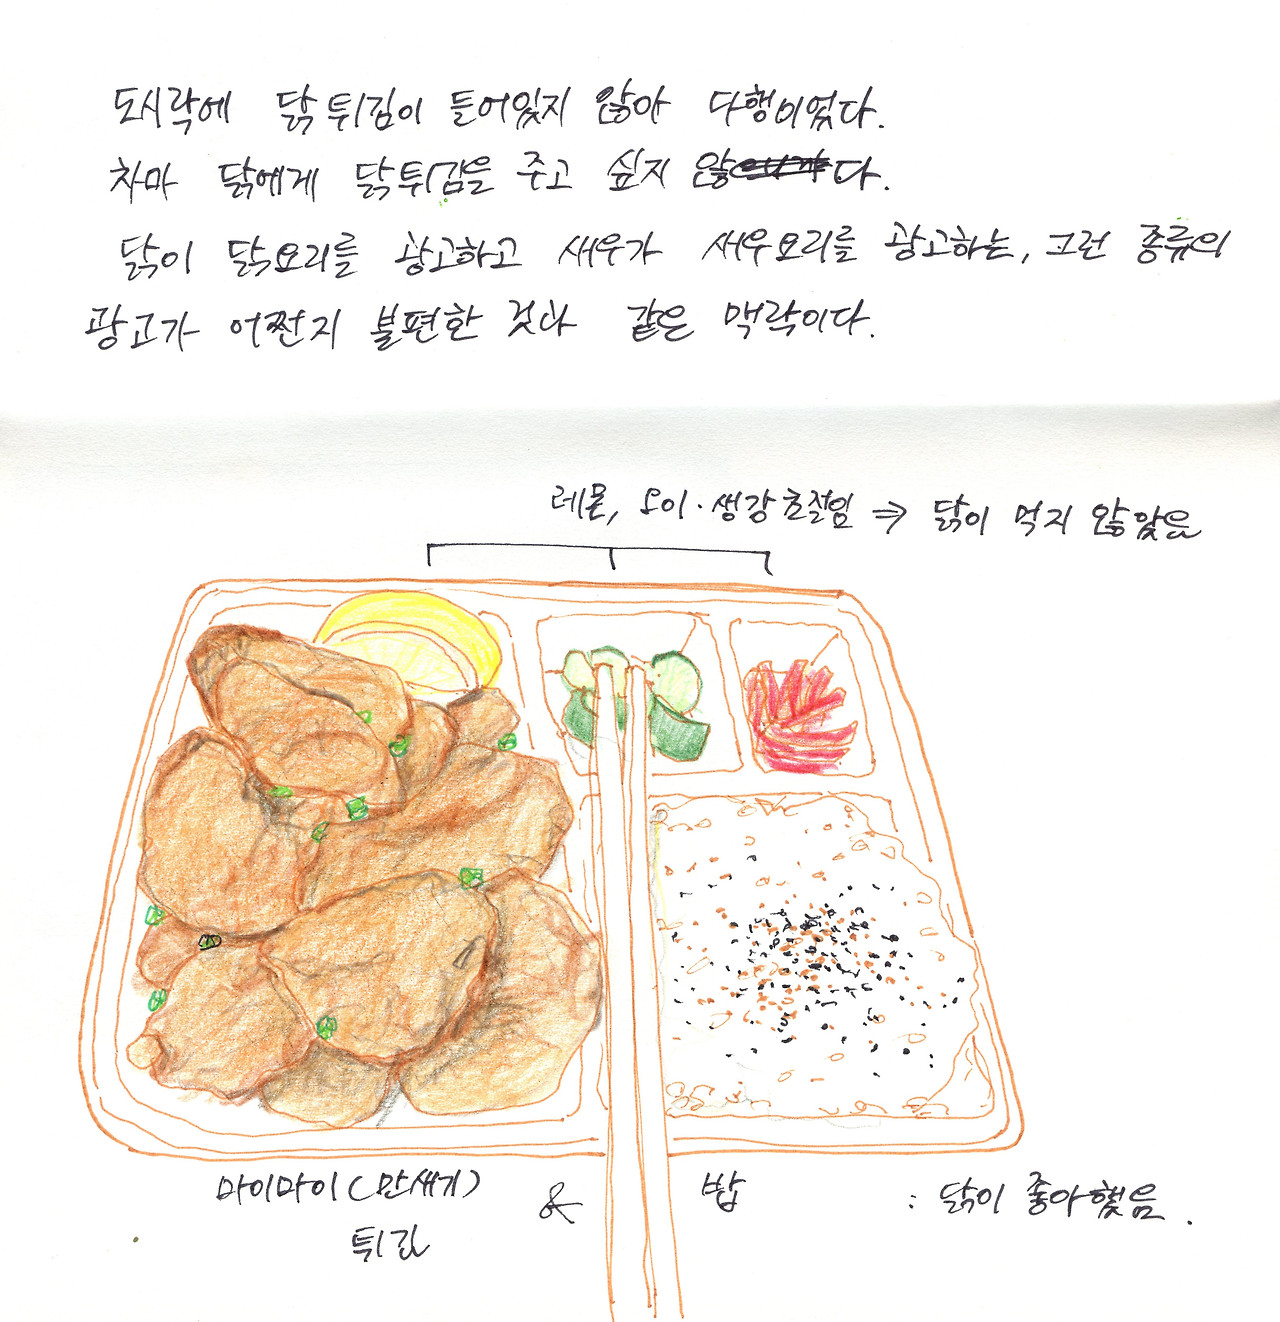 도시락에 닭튀김이 들어있지 않아 다행이었다.
차마 닭에게 닭튀김을 주고 싶지 않다.
닭이 닭요리를 광고하고 새우가 새우요리를 광고하는, 그런 종류의
광고가 어쩐지 불편한 것과 같은 맥락이다.
레몬, 오이·생강초절임 ⇒ 닭이 먹지 않았음
마이마이(만새기) & 밥 : 닭이 좋아했음.
튀김